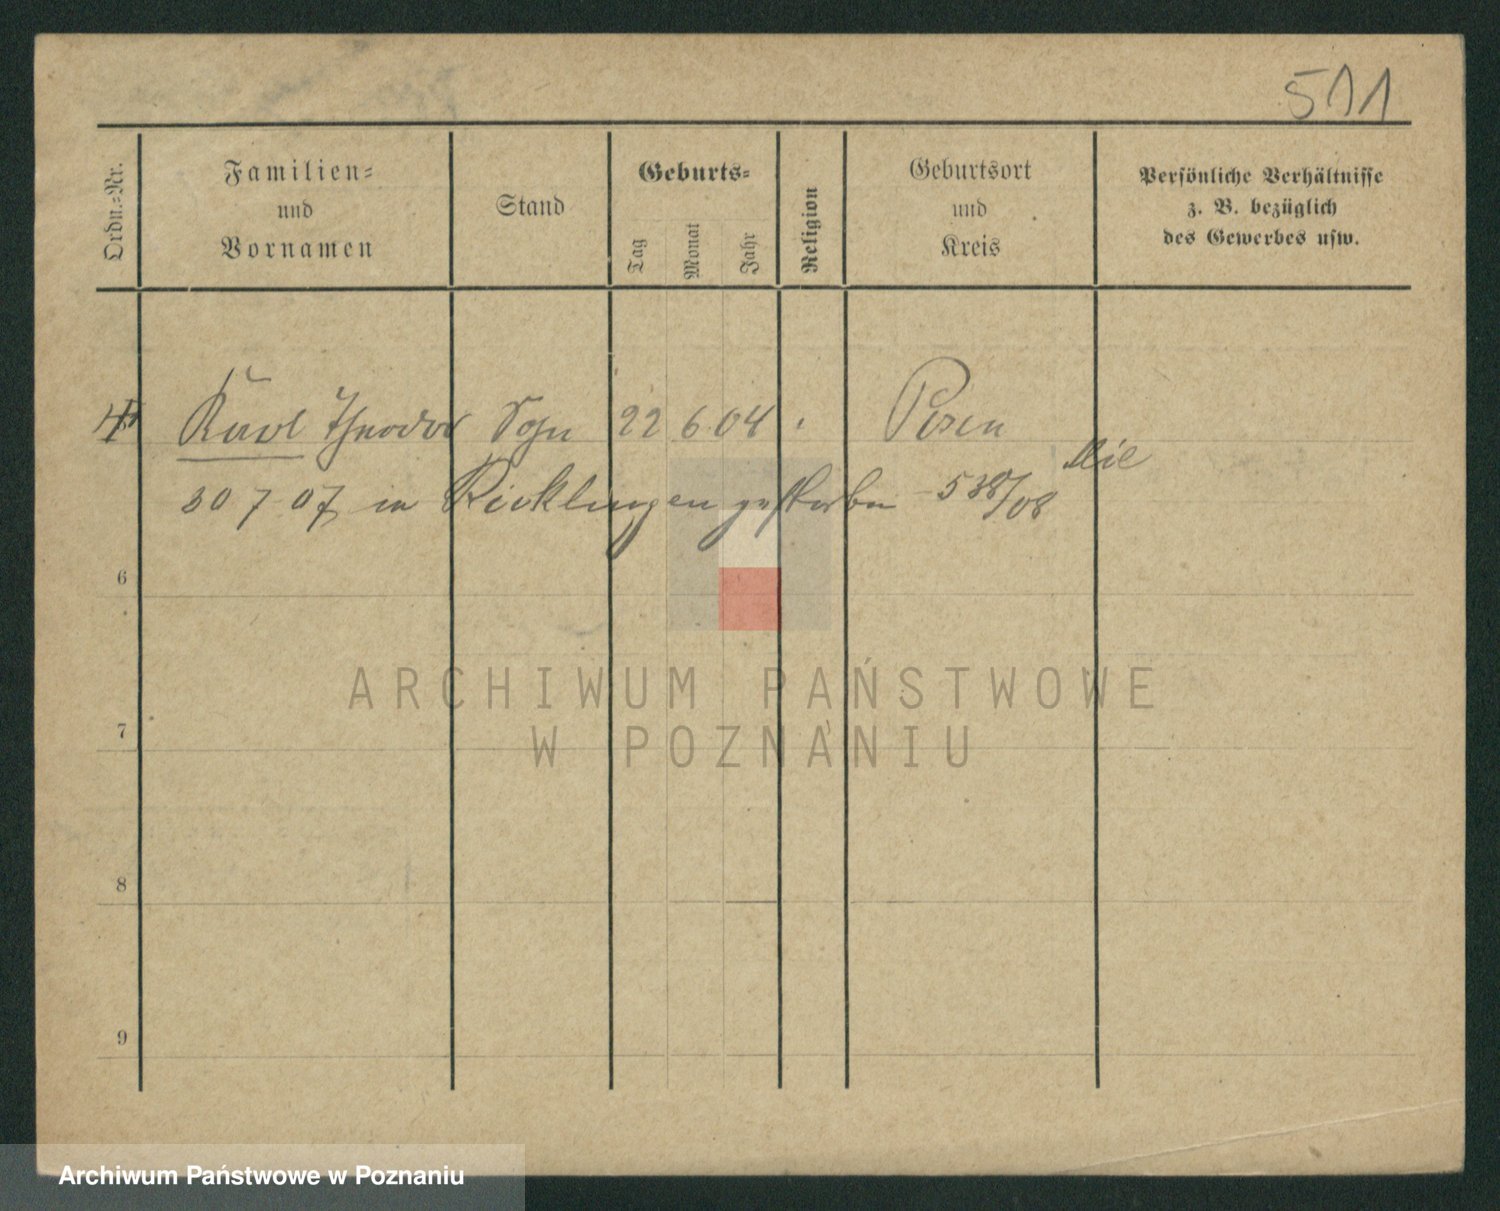 511
Ordn.-Nr.
Familien-
und
Vornamen
Stand
Geburts-
Tag
Monat
Jahr
Religion
Geburtsort
und
Kreis
Persönliche Verhältnisse
z. B. bezüglich
des Gewerbes usw.
4 Karl Theodor Sohn 22 6 04 Posen
30 7 07 in Ricklingen gestorben - 538/08
6
7
8
9
ARCHIWUM PAŃSTWOWE
W POZNANIU
Archiwum Państwowe w Poznaniu